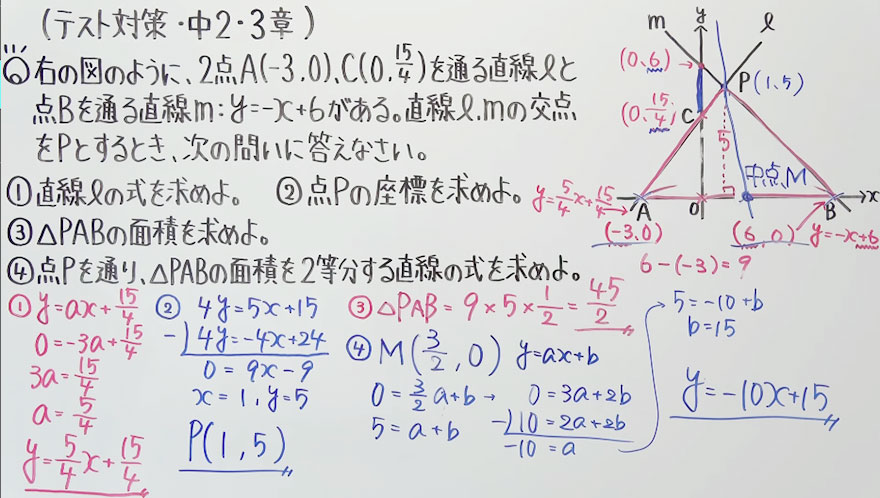 (テスト対策・中2・3章)
⑥右の図のように、2点A(-3,0)、C(0,15/4)を通る直線ℓと
点Bを通る直線m:y=-x+6がある。直線ℓ,mの交点
をPとするとき、次の問いに答えなさい。
①直線ℓの式を求めよ。 ②点Pの座標を求めよ。
③△PABの面積を求めよ。
④点Pを通り、△PABの面積を2等分する直線の式を求めよ。
m y ℓ
(0,6)→
P(1,5)
(0,15/4)
C
5
中点M
y=5/4x+15/4
A O B x
(-3,0) (6,0) y=-x+6
6-(-3)=9
① y=ax+15/4
0=-3a+15/4
3a=15/4
a=5/4
y=5/4x+15/4
② 4y=5x+15
-)4y=-4x+24
0=9x-9
x=1,y=5
P(1,5)
③△PAB=9×5×1/2=45/2
④M(3/2,0) y=ax+b
0=3/2a+b→ 0=3a+2b
5=a+b -)10=2a+2b
-10=a
5=-10+b
b=15
y=-10x+15